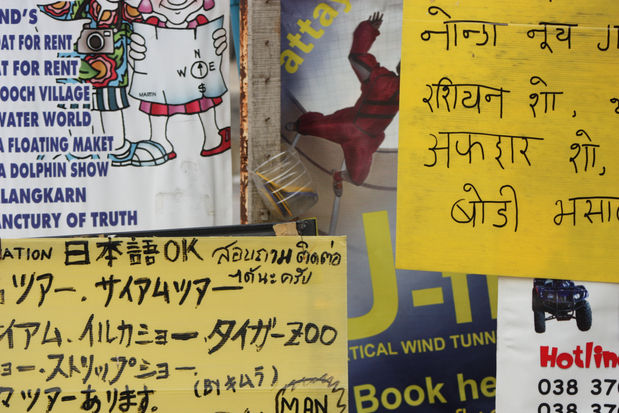 ND'S
OAT FOR RENT
AT FOR RENT
OOCH VILLAGE
WATER WORLD
A FLOATING MAKET
A DOLPHIN SHOW
LANGKARN
SANCTURY OF TRUTH
N
W E
S
MARTIN
attay
नोन्ग नूच
रशियन शो,
शो,
बोडी
ATION 日本語OK สอบถาม ติดต่อ
ได้นะครับ
ツアー.サイアムツアー
イアム.イルカショー.タイガーZOO
ョー.ストリップショー.
マツアーあります.
(BYキムラ)
MAN
U-fl
RTICAL WIND TUNN
Book he
Hotlin
038 37
038 370